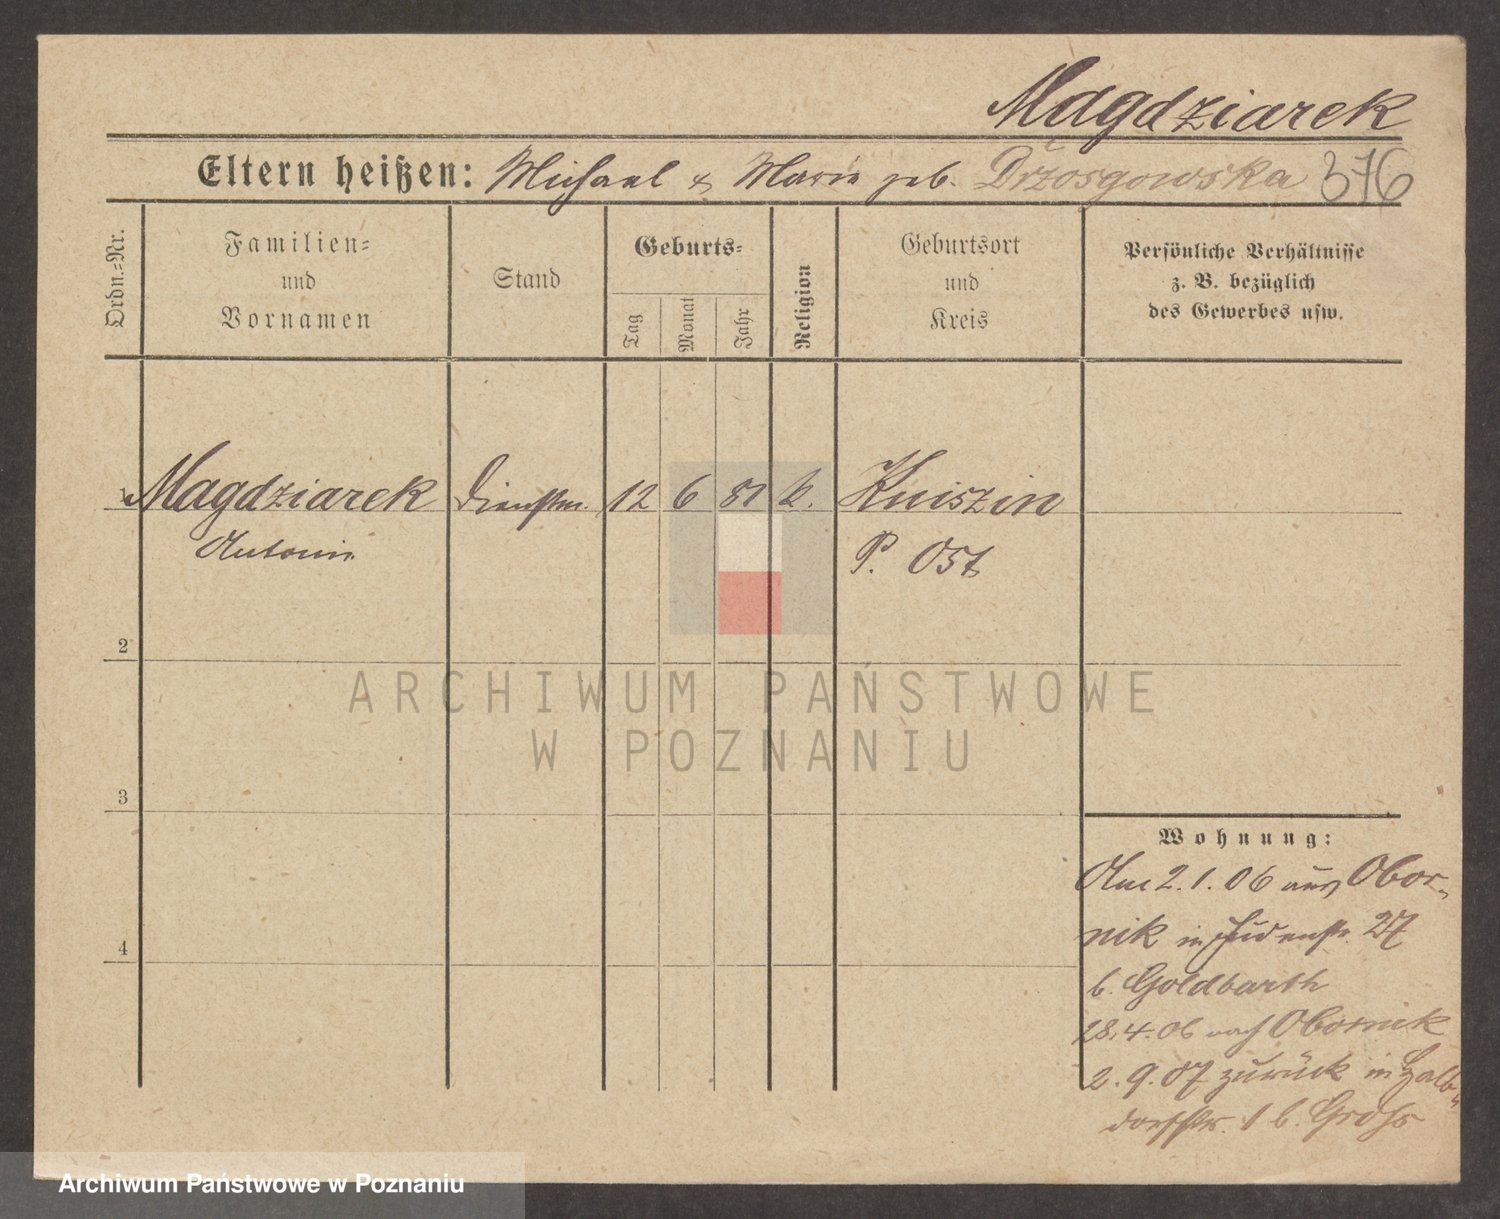 Magdziarek
Eltern heißen: Michael & Marie geb. Držosgowska 376
Ordn.-Nr.
Familien-
und
Vornamen
Stand
Geburts-
Tag
Monat
Jahr
Religion
Geburtsort
und
Kreis
Persönliche Verhältnisse
z. B. bezüglich
des Gewerbes usw.
1 Magdziarek Dienstm. 12 6 81 k. Kniszin
Antonie P. Ost
2
3
4
Wohnung:
Am 2.1.06 aus Obor-
nik in Judenstr. 27
b. Goldbarth
28.4.06 nach Obornik
2.9.07 zurück in Halb-
dorfstr. 1 b. Grohs
ARCHIWUM PAŃSTWOWE
W POZNANIU
Archiwum Państwowe w Poznaniu